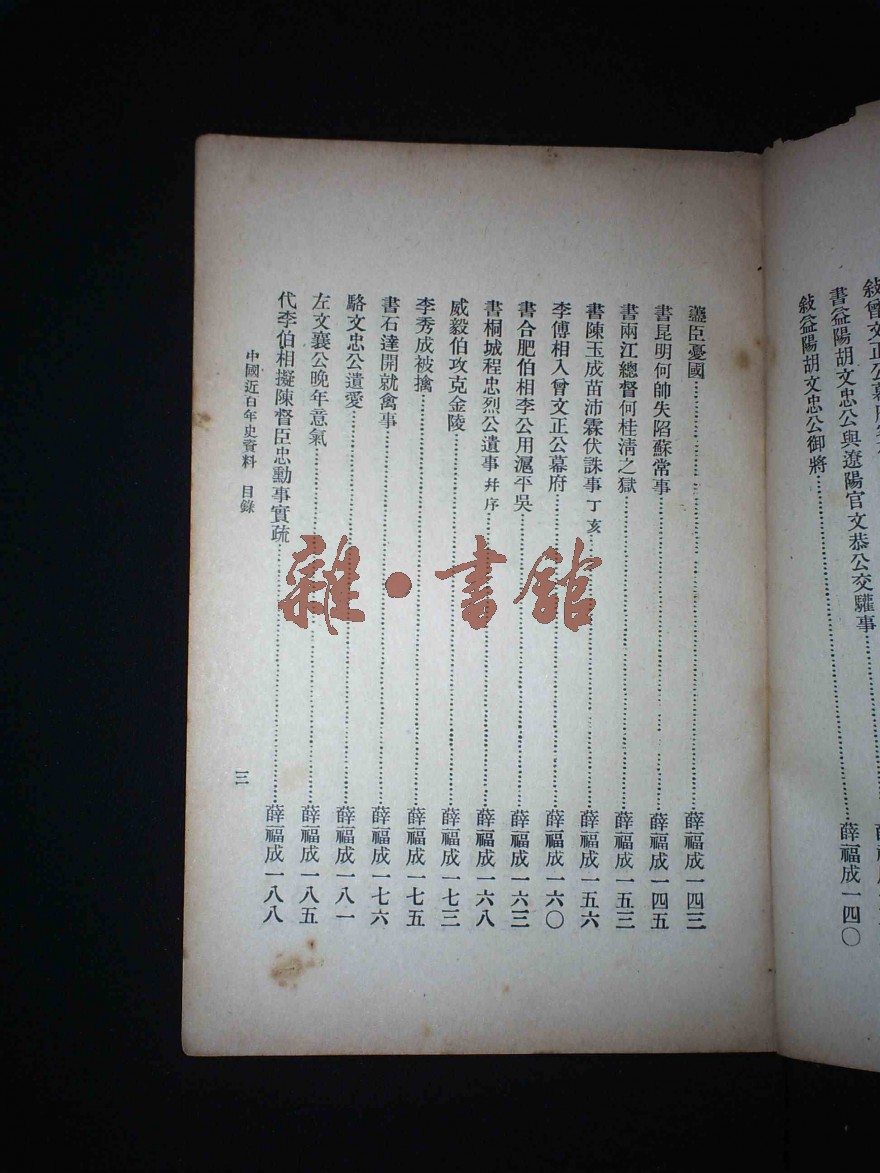 書益陽胡文忠公與遼陽官文恭公交驩事
敍益陽胡文忠公御將………薛福成一四〇
藎臣憂國………薛福成一四三
書昆明何帥失陷蘇常事………薛福成一四五
書兩江總督何桂清之獄………薛福成一五三
書陳玉成苗沛霖伏誅事 丁亥………薛福成一五六
李傅相入曾文正公幕府………薛福成一六〇
書合肥伯相李公用滬平吳………薛福成一六三
書桐城程忠烈公遺事 幷序………薛福成一六八
威毅伯攻克金陵………薛福成一七三
李秀成被擒………薛福成一七五
書石達開就禽事………薛福成一七六
駱文忠公遺愛………薛福成一八一
左文襄公晚年意氣………薛福成一八五
代李伯相擬陳督臣忠勳事實疏………薛福成一八八
中國近百年史資料 目錄
三
雜·書館